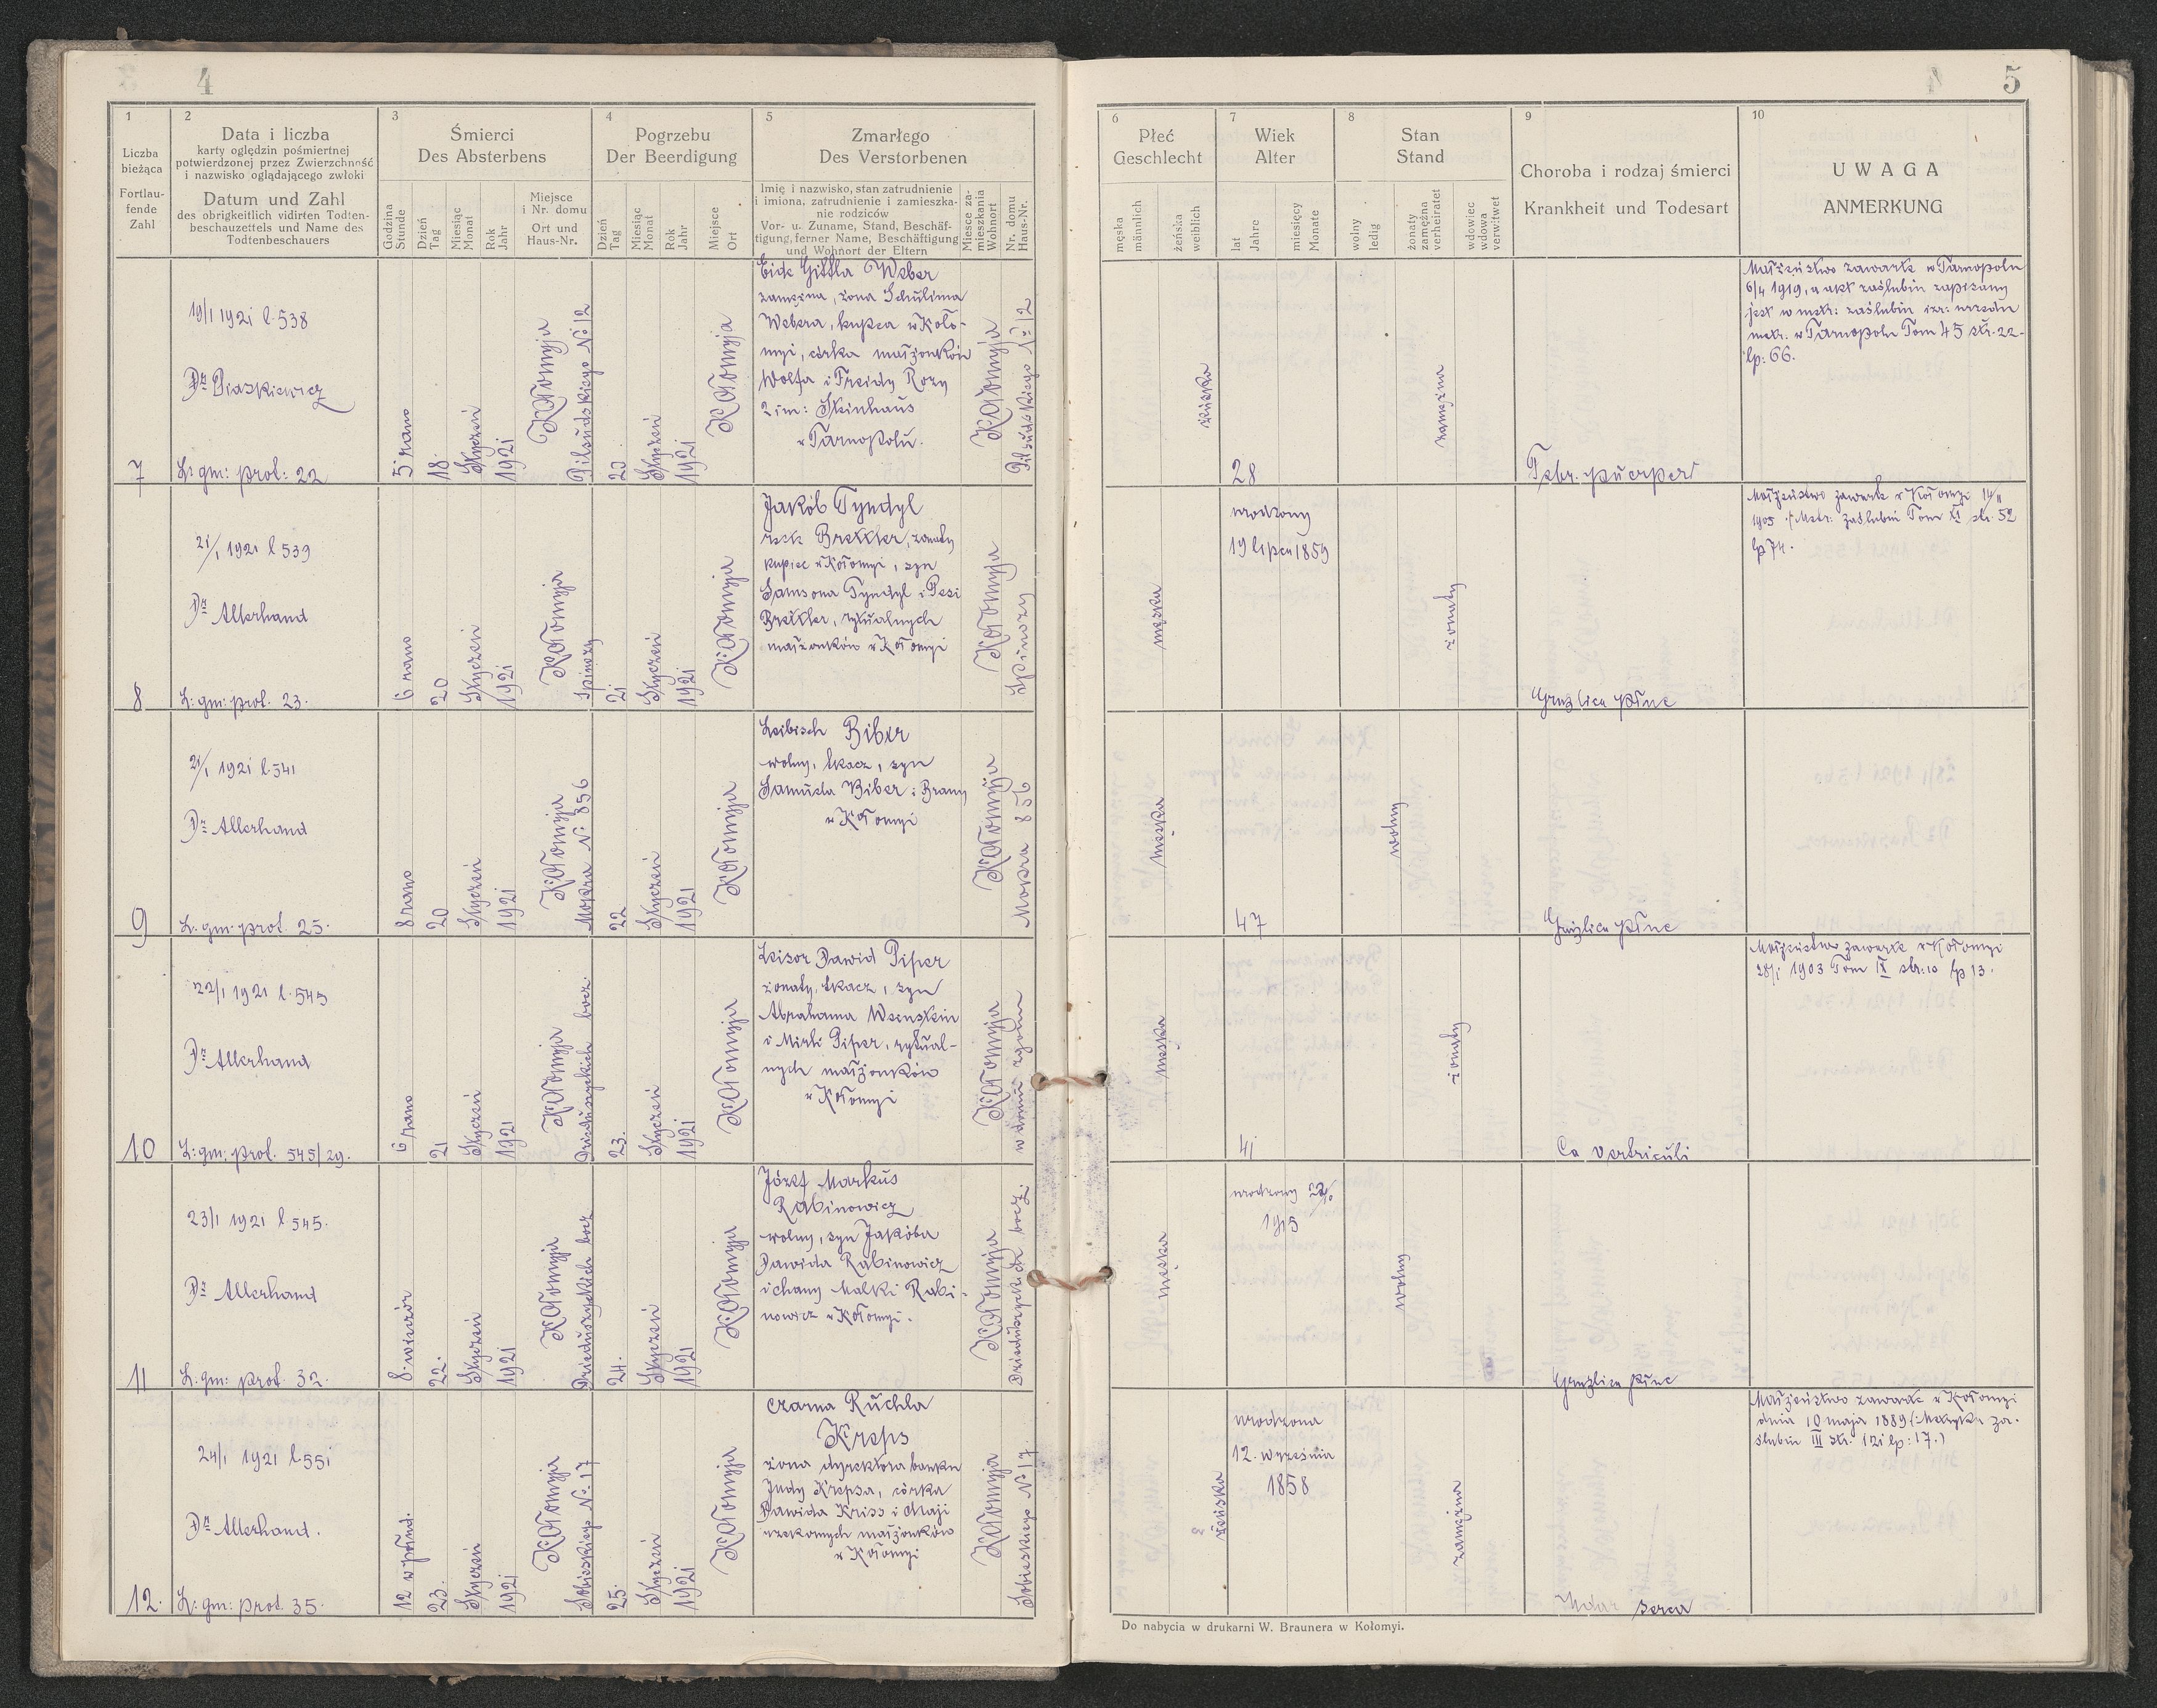 4
1
Liczba
bieżąca
Fortlau-
fende
Zahl
2
Data i liczba
karty oględzin pośmiertnej
potwierdzonej przez Zwierzchność
i nazwisko oglądającego zwłoki
Datum und Zahl
des obrigkeitlich vidirten Todten-
beschauzettels und Name des
Todtenbeschauers
3
Śmierci
Des Absterbens
Godzina
Stunde
Dzień
Tag
Miesiąc
Monat
Rok
Jahr
Miejsce
i Nr. domu
Ort und
Haus-Nr.
4
Pogrzebu
Der Beerdigung
Dzień
Tag
Miesiąc
Monat
Rok
Jahr
Miejsce
Ort
5
Zmarłego
Des Verstorbenen
Imię i nazwisko, stan zatrudnienie
i imiona, zatrudnienie i zamieszka-
nie rodziców
Vor- u. Zuname, Stand, Beschäf-
tigung, ferner Name, Beschäftigung
und Wohnort der Eltern
Miesce za-
mieszkania
Wohnort
Nr. domu
Haus-Nr.
7
19/I 1921 l. 538
Dr Piaskiewicz
L: gm: prol: 22
5 rano
18.
Styczeń
1921
Kołomyja
Piłsudskiego Nº 12
20
Styczeń
1921
Kołomyja
Eide Gittla Weber
zamężna, żona Schulima
Webera, kupca w Koło-
myi, córka małżonków
Wolfa i Freidy Rozy
2 im: Steinhaus
w Tarnopolu.
Kołomyja
Piłsudskiego Nº 12
8
21/I 1921 l 539
Dr Allerhand
L: gm: prol. 23.
6 rano
20
Styczeń
1921
Kołomyja
Spinozy
21
Styczeń
1921
Kołomyja
Jakób Tyndyl
recte Brettler, żonaty
kupiec w Kołomyi, syn
Samsona Tyndyl i Pesi
Brettler, rytualnych
małżonków w Kołomyi
Kołomyja
Spinozy
9
21/I 1921 l. 541
Dr Allerhand
L. gm. prot 25.
8 rano
20
Styczeń
1921
Kołomyja
Mokra Nº 856
22
Styczeń
1921
Kołomyja
Leibisch Biber
wolny, tkacz, syn
Samuela Biber i Brany
w Kołomyi
Kołomyja
Mokra 856
10
22/I 1921 l. 545
Dr Allerhand
L: gm: prol. 545/29.
6 rano
21
Styczeń
1921
Kołomyja
Dzieduszyckich bocz.
23.
Styczeń
1921
Kołomyja
Leisor Dawid Piper
żonaty, tkacz, syn
Abrahama
i Mirli Piper, rytual-
nych małżonków
w Kołomyi
Kołomyja
w domu zgonu
11
23/I 1921 l 545.
Dr Allerhand
L: gm: prot. 32.
8. wieczór
22.
Styczeń
1921
Kołomyja
Dzieduszyckich bocz
24.
Styczeń
1921
Kołomyja
Józef Markus
Rabinowicz
wolny, syn Jakóba
Dawida Rabinowicz
i Chany Malki Rabi-
nowicz w Kołomyi.
Kołomyja
Dzieduszyckich bocz.
12.
24/I 1921 l. 551
Dr Allerhand.
L: gm: prot. 35.
12 w połud.
23.
Styczeń
1921
Kołomyja
Sobieskiego Nº 17
25.
Styczeń
1921
Kołomyja
Czarna Ruchla
Kreps
żona dyrektora banku
Judy Krepsa, córka
Dawida Kriss i Maji
rzekomych małżonków
w Kołomyi
Kołomyja
Sobieskiego Nº 17.
5
6
Płeć
Geschlecht
męska
männlich
żeńska
weiblich
7
Wiek
Alter
lat
Jahre
miesięcy
Monate
8
Stan
Stand
wolny
ledig
żonaty
zamężna
verheiratet
wdowiec
wdowa
verwitwet
9
Choroba i rodzaj śmierci
Krankheit und Todesart
10
UWAGA
ANMERKUNG
żeńska
28
zamężna
Febr. puerper
Małżeństwo zawarte w Tarnopolu
6/4 1919, a akt zaślubin zapisany
jest w metr: zaślubin izr: urzędu
metr. w Tarnopolu Tom 45 str. 22-
lp: 66.
męska
urodzony
19 lipca 1859
żonaty
Gruźlica płuc
Małżeństwo zawarte w Kołomyi
1905 /: Metr: zaślubin Tom str. 52
lp 74.
męska
47
wolny
Gruźlica płuc
męska
41
żonaty
Ca Ventriculi
Małżeństwo zawarte w Kołomyi
1903 Tom IX str: 10 lp 13.
męska
urodzony
1915
wolny
Gruźlica płuc
żeńska
urodzona
12. września
1858
zamężna
Udar serca
Małżeństwo zawarte w Kołomyi
dnia 10 maja 1889 (: Metryka za-
ślubin III str: 121 lp: 17.)
Do nabycia w drukarni W. Braunera w Kołomyi.